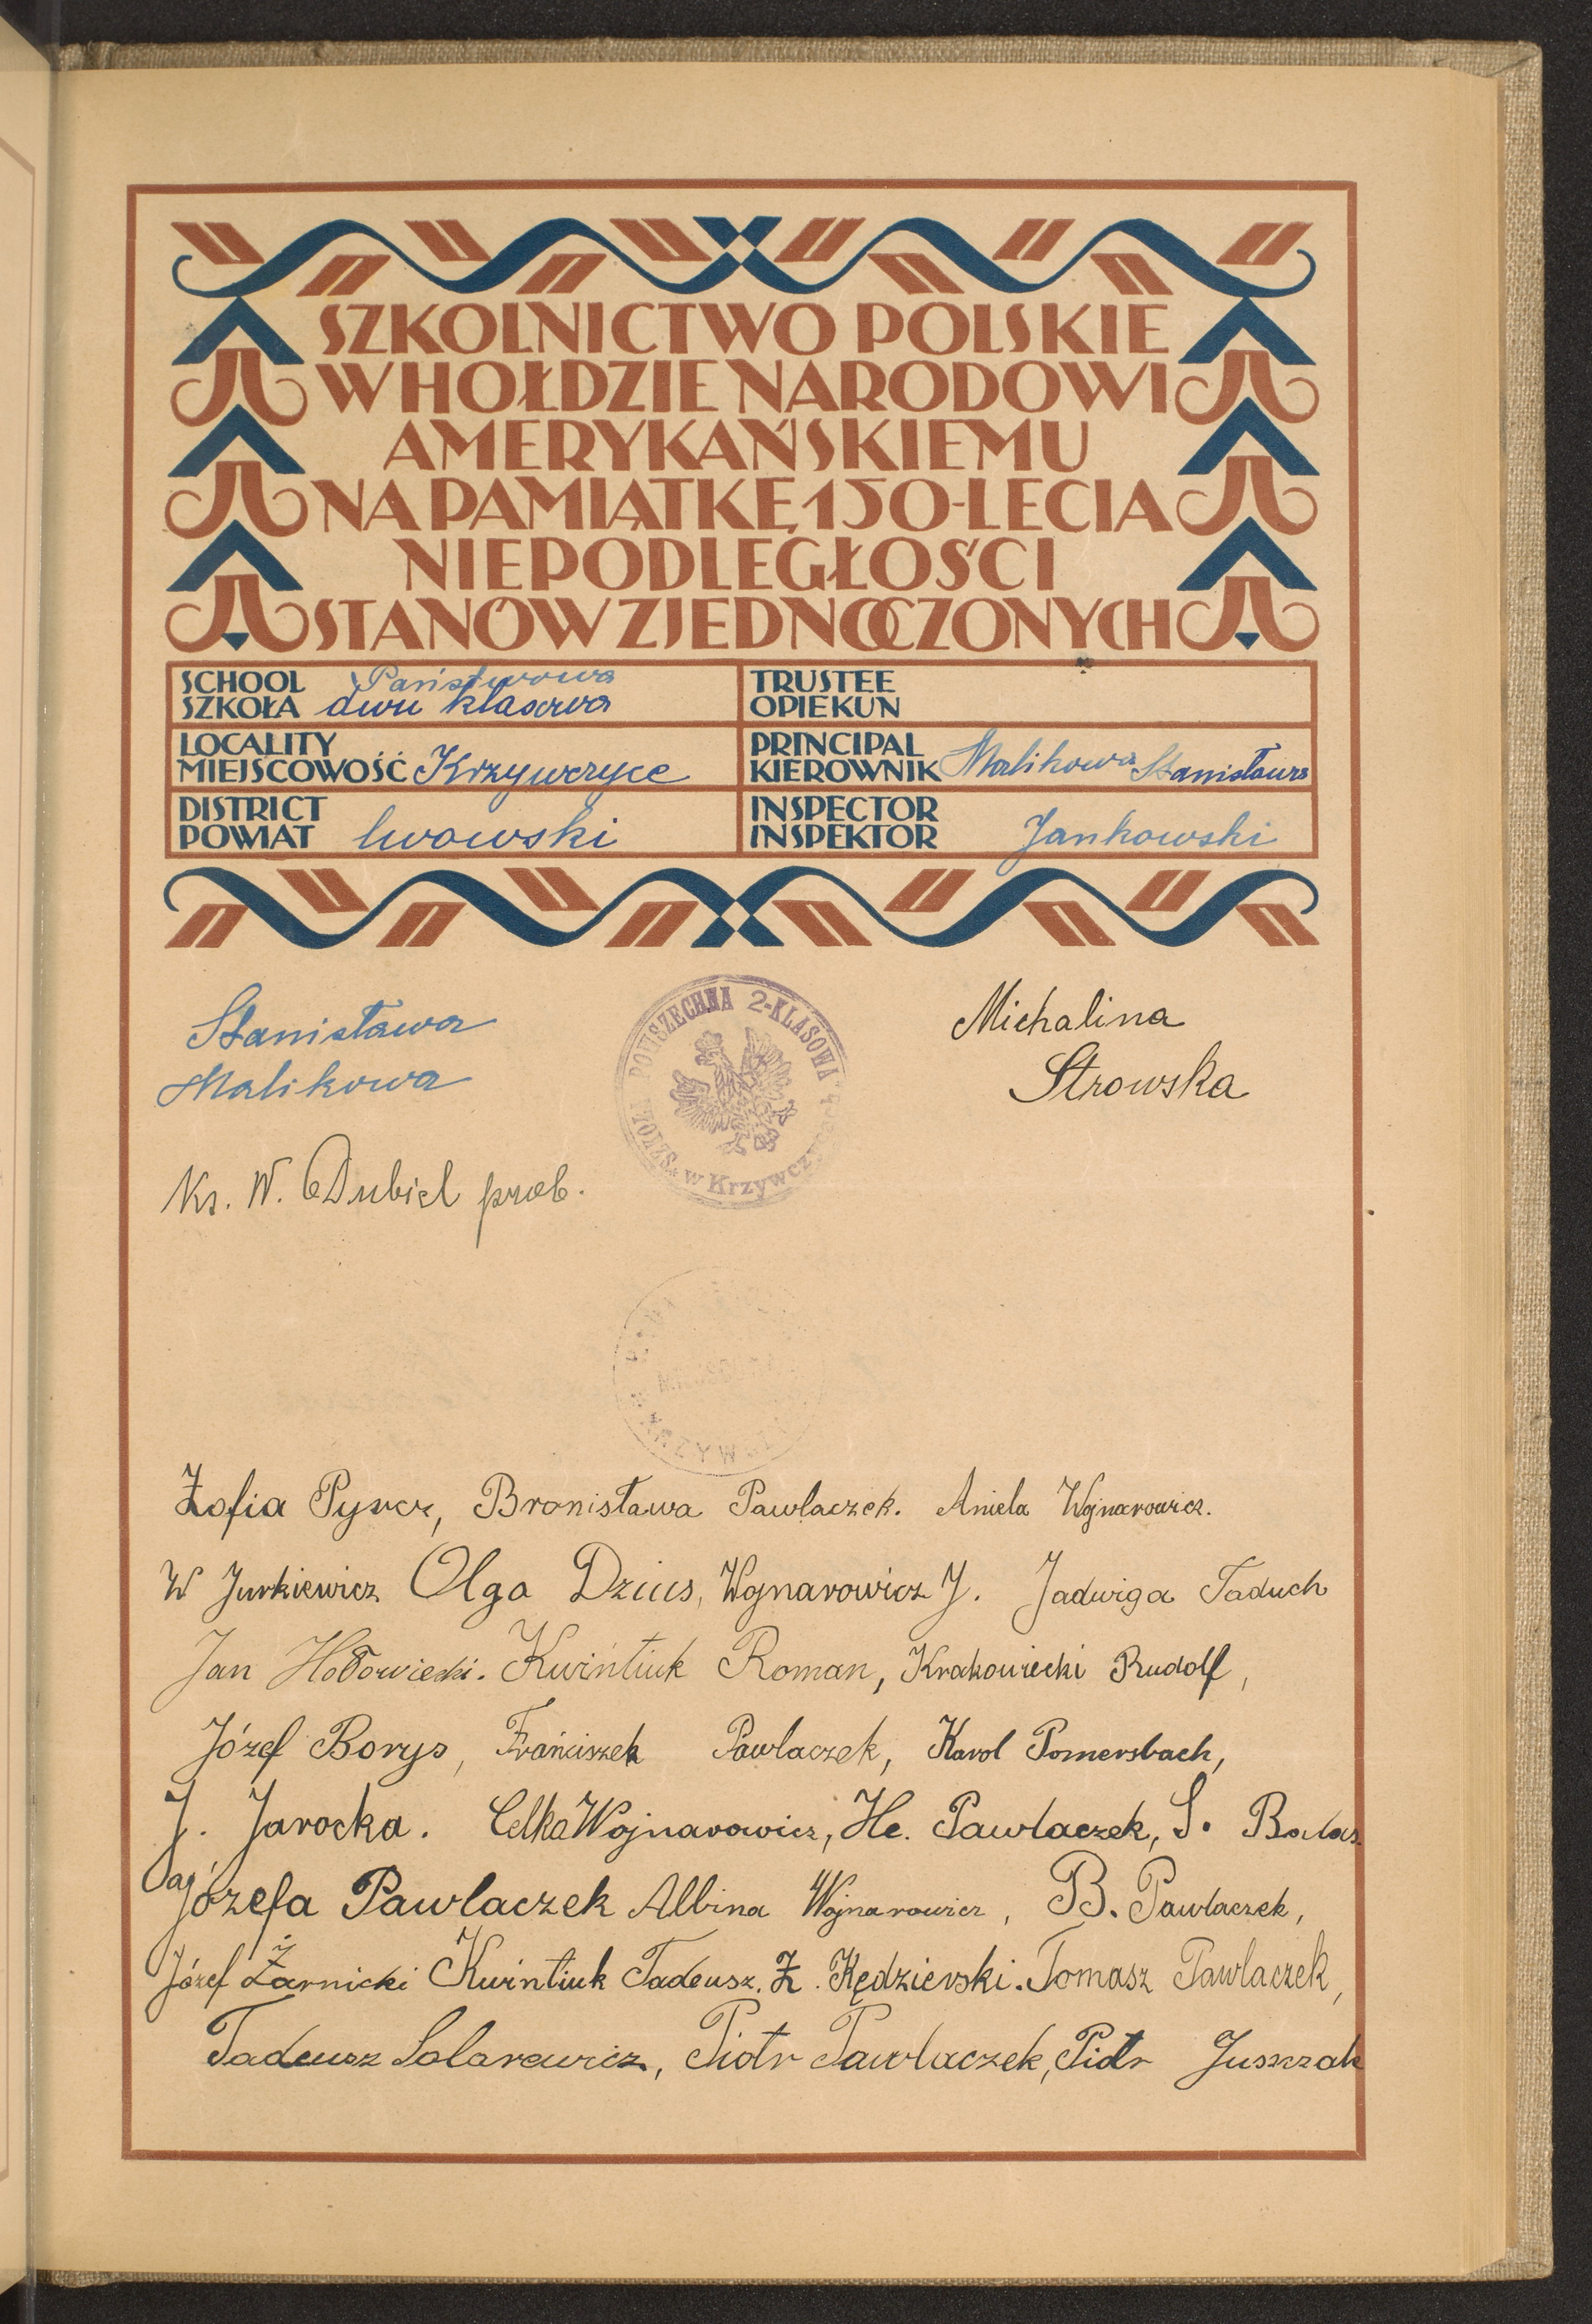 SZKOLNICTWO POLSKIE
W HOŁDZIE NARODOWI
AMERYKAŃSKIEMU
NA PAMIĄTKĘ 150-LECIA
NIEPODLEGŁOŚCI
STANÓW ZJEDNOCZONYCH
SCHOOL
SZKOŁA
Państwowa
dwu klasowa
TRUSTEE
OPIEKUN
LOCALITY
MIEJSCOWOŚĆ Krzywczyce
PRINCIPAL
KIEROWNIK Malikowa Stanisława
DISTRICT
POWIAT lwowski
INSPECTOR
INSPEKTOR Jankowski
Stanisława
Malikowa
POWSZECHNA 2-KLASOWA
SZKOŁA
w Krzywczycach
Michalina
Strowska
Ks. W. Dubiel prob.
Zofia Bronisława Pawlaczek. Aniela Wojnarowicz.
W Jurkiewicz Olga Dzius, Wojnarowicz J. Jadwiga Taduch
Jan Hołowiecki. Kwintiuk Roman, Krakowiecki Rudolf,
Józef Borys, Franciszek Pawlaczek, Karol Pomersbach,
J. Jarocka. Celka Wojnarowicz, He. Pawlaczek, S.
Józefa Pawlaczek Albina Wojnarowicz, B. Pawlaczek,
Józef Żarnicki Kwintiuk Tadeusz. Z. Kędzierski. Tomasz Pawlaczek,
Tadeusz Solarewicz, Piotr Pawlaczek, Piotr Juszczak